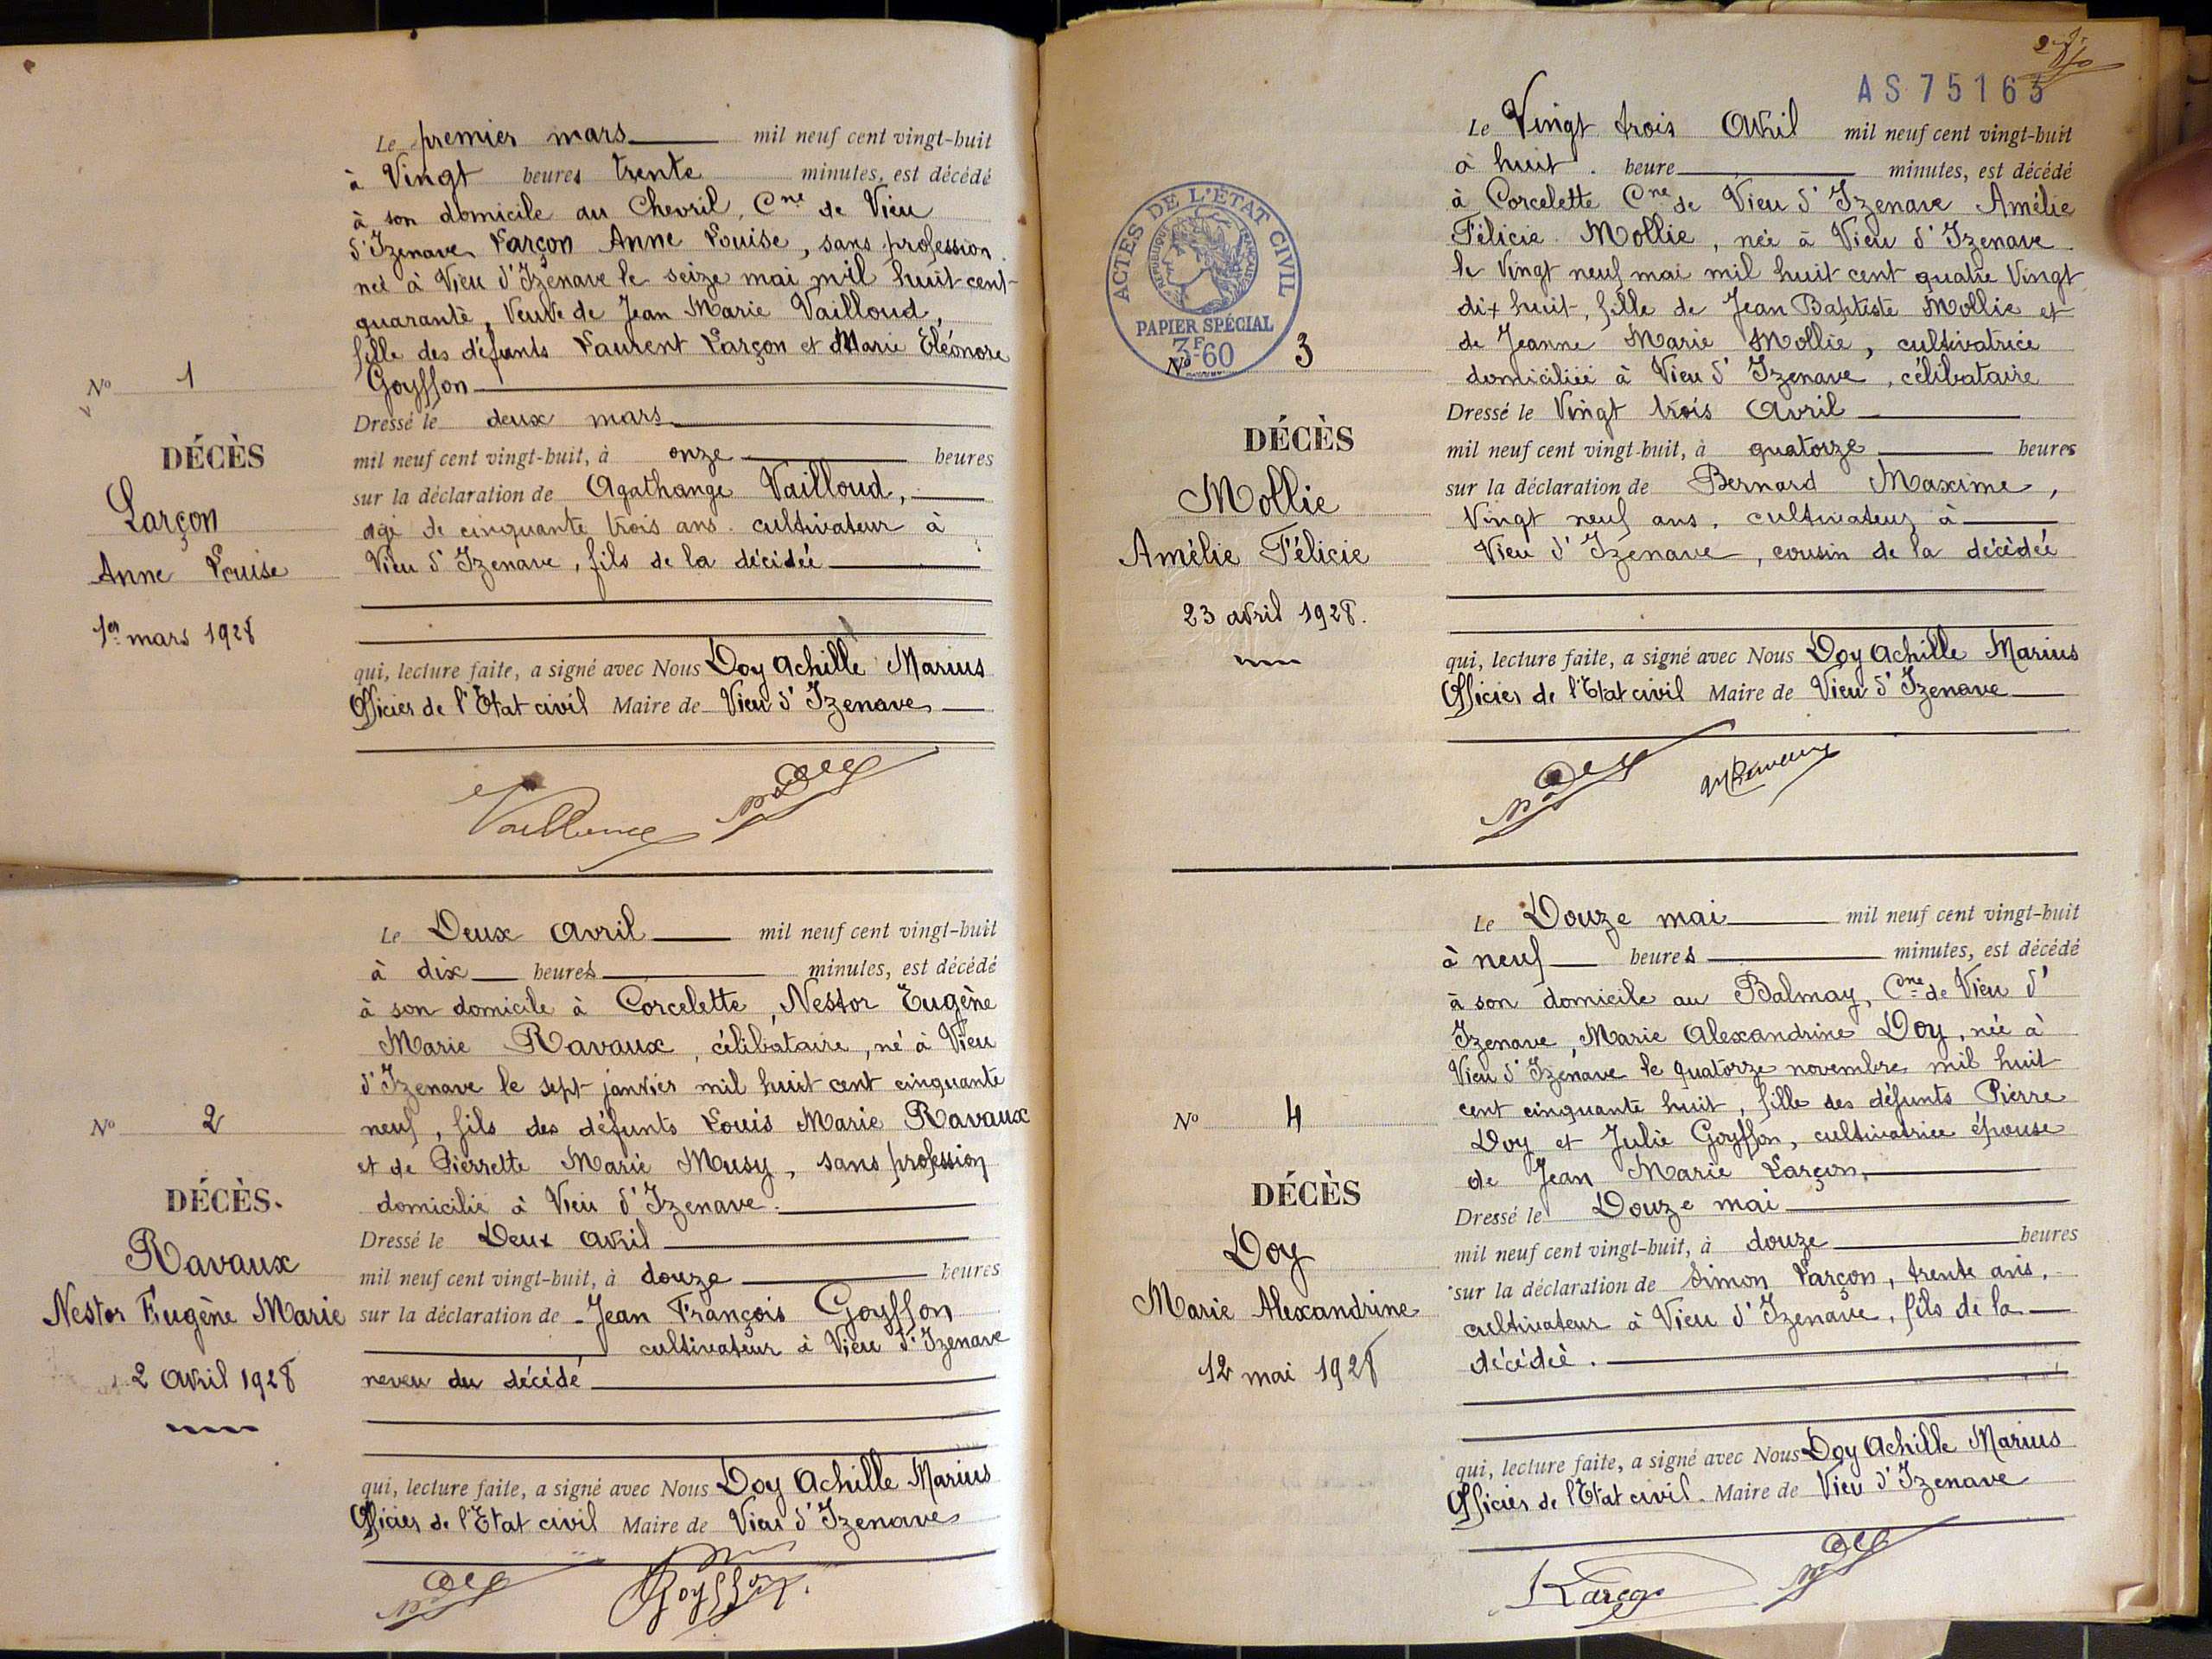 Le premier mars mil neuf cent vingt-huit
à Vingt heures trente minutes, est décédé
à son domicile au Chevril, Cne de Vieu
d'Izenave Larçon Anne Louise, sans profession
née à Vieu d'Izenave le seize mai mil huit cent
quarante, Veuve de Jean Marie Vailloud,
fille des défunts Laurent Larçon et Marie Eléonore
Goyffon
Nº 1
Dressé le deux mars
DÉCÈS
mil neuf cent vingt-huit, à onze heures
Larçon
sur la déclaration de Agathange Vailloud,
Anne Louise
agé de cinquante trois ans. cultivateur à
Vieu d'Izenave, fils de la décédée
1er mars 1928
qui, lecture faite, a signé avec Nous Doy Achille Marius
Officier de l'Etat civil Maire de Vieu d'Izenave
Le Deux Avril mil neuf cent vingt-huit
à dix heures minutes, est décédé
à son domicile à Corcelette, Nestor Eugène
Marie Ravaux, célibataire, né à Vieu
d'Izenave le sept janvier mil huit cent cinquante
neuf, fils des défunts Louis Marie Ravaux
et de Pierrette Marie Musy, sans profession
domicilié à Vieu d'Izenave.
Nº 2
DÉCÈS.
Dressé le Deux Avril
Ravaux
mil neuf cent vingt-huit, à douze heures
Nestor Eugène Marie
sur la déclaration de Jean François Goyffon
cultivateur à Vieu d'Izenave
2 Avril 1928
neveu du décédé
qui, lecture faite, a signé avec Nous Doy Achille Marius
Officier de l'Etat civil Maire de Vieu d'Izenave
Goyffon
AS 75163
Le Vingt trois Avril mil neuf cent vingt-huit
à huit. heure minutes, est décédé
à Corcelette Cne de Vieu d'Izenave Amélie
Félicie Mollie, née à Vieu d'Izenave
le Vingt neuf mai mil huit cent quatre Vingt
dix huit, fille de Jean Baptiste Mollie et
de Jeanne Marie Mollie, cultivatrice
domiciliée à Vieu d'Izenave, célibataire
ACTES DE L'ÉTAT CIVIL
RÉPUBLIQUE FRANÇAISE
PAPIER SPÉCIAL
3F60
Nº 3
Dressé le Vingt trois Avril
DÉCÈS
mil neuf cent vingt-huit, à quatorze heures
Mollie
sur la déclaration de Bernard Maxime,
Amélie Félicie
Vingt neuf ans, cultivateur à
Vieu d'Izenave, cousin de la décédée
23 avril 1928.
qui, lecture faite, a signé avec Nous Doy Achille Marius
Officier de l'Etat civil Maire de Vieu d'Izenave
Le Douze mai mil neuf cent vingt-huit
à neuf heures minutes, est décédé
à son domicile au Balmay, Cne de Vieu d'
Izenave, Marie Alexandrine Doy, née à
Vieu d'Izenave le quatorze novembre mil huit
cent cinquante huit, fille des défunts Pierre
Doy et Julie Goyffon, cultivatrice épouse
de Jean Marie Larçon.
Nº 4
DÉCÈS
Dressé le Douze mai
Doy
mil neuf cent vingt-huit, à douze heures
Marie Alexandrine
sur la déclaration de Simon Larçon, trente ans,
cultivateur à Vieu d'Izenave, fils de la
12 mai 1928
décédée.
qui, lecture faite, a signé avec Nous Doy Achille Marius
Officier de l'Etat civil. Maire de Vieu d'Izenave
Larçon